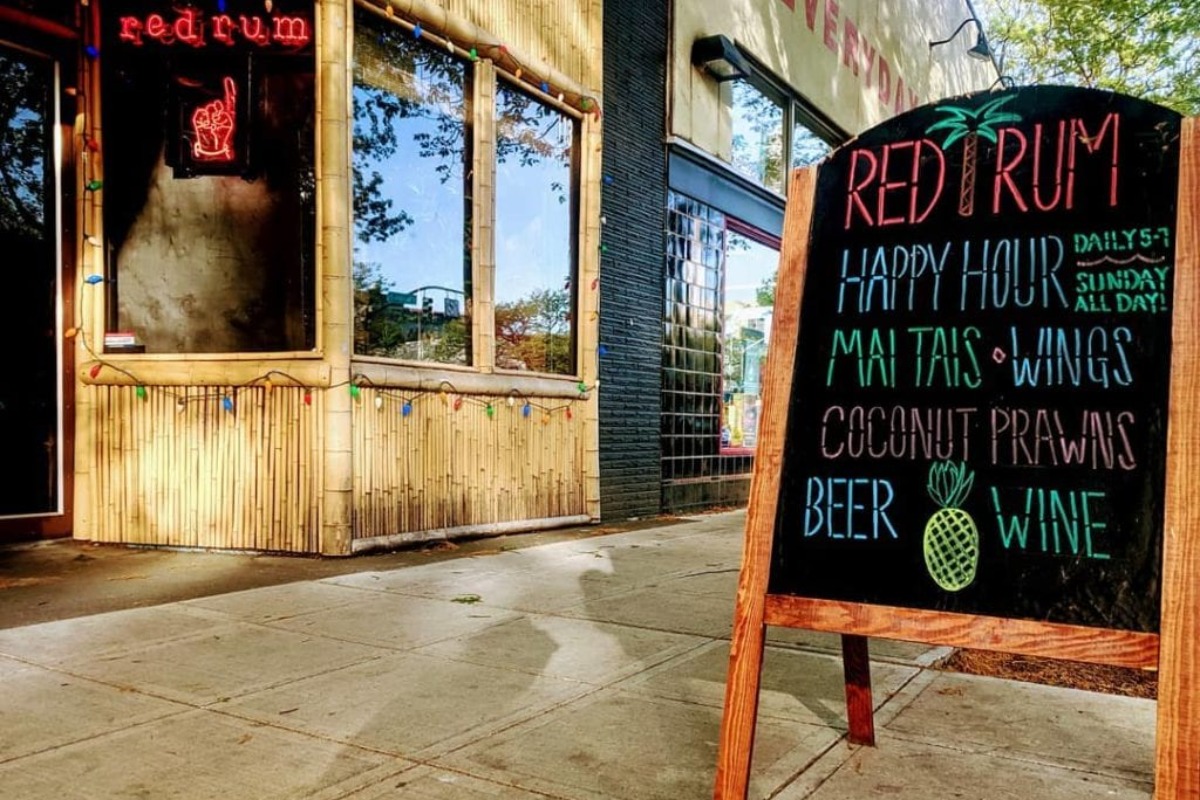 red rum
EVERYDAY
RED RUM
HAPPY HOUR
DAILY 5-7
SUNDAY
ALL DAY!
MAI TAIS • WINGS
COCONUT PRAWNS
BEER WINE